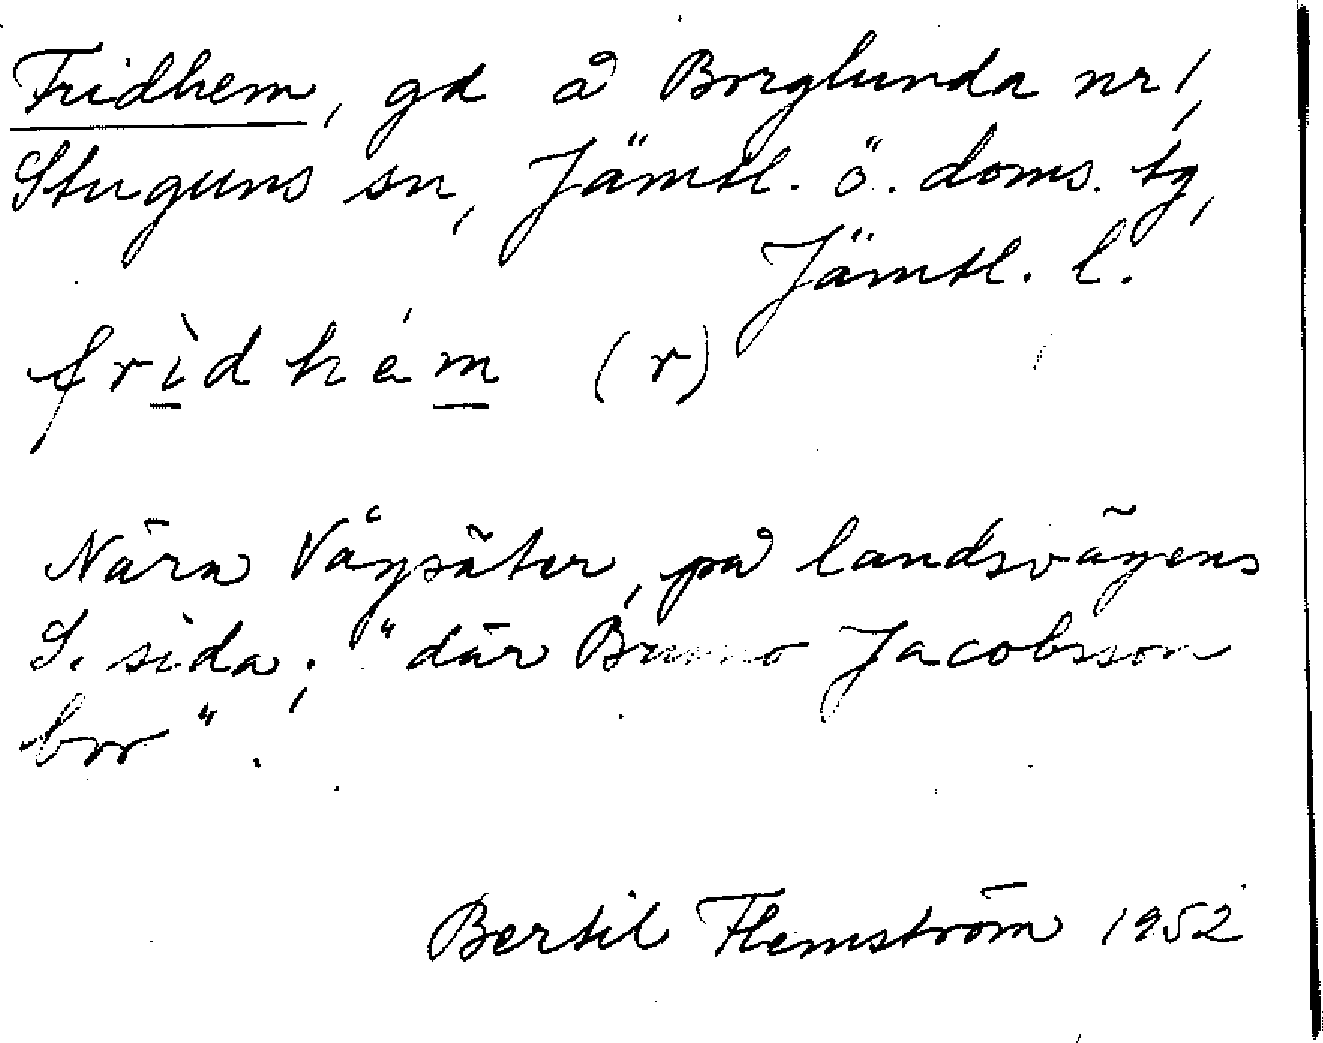 Fridhem, gd å Borglunda nr 1,
Stuguns sn, Jämtl. ö. doms. tg,
Jämtl. l.
frìdhém (r)
Nära Vågsäter, på landsvägens
S. sida; "där Bruno Jacobsson
bor".
Bertil Flemström 1952